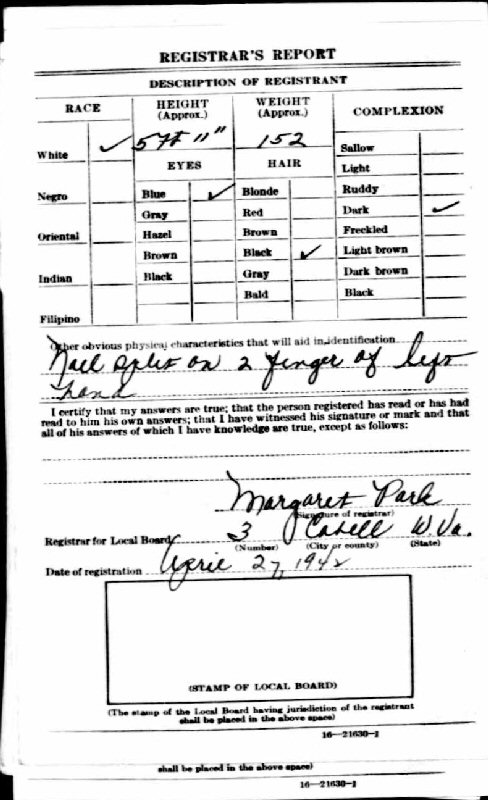 REGISTRAR'S REPORT
DESCRIPTION OF REGISTRANT
RACE
HEIGHT
(Approx.)
WEIGHT
(Approx.)
COMPLEXION
5 ft 11"
152
White ✓
EYES
HAIR
Sallow
Light
Negro
Blue ✓
Blonde
Ruddy
Gray
Red
Dark ✓
Oriental
Hazel
Brown
Freckled
Brown
Black ✓
Light brown
Indian
Black
Gray
Dark brown
Bald
Black
Filipino
Other obvious physical characteristics that will aid in identification
Nail split on 2 finger of left
hand
I certify that my answers are true; that the person registered has read or has had
read to him his own answers; that I have witnessed his signature or mark and that
all of his answers of which I have knowledge are true, except as follows:
Margaret Park
(Signature of registrar)
Registrar for Local Board 3 Cabell W. Va.
(Number) (City or county) (State)
Date of registration April 27, 1942
(STAMP OF LOCAL BOARD)
(The stamp of the Local Board having jurisdiction of the registrant
shall be placed in the above space)
16—21630-1
shall be placed in the above space)
16—21630-1